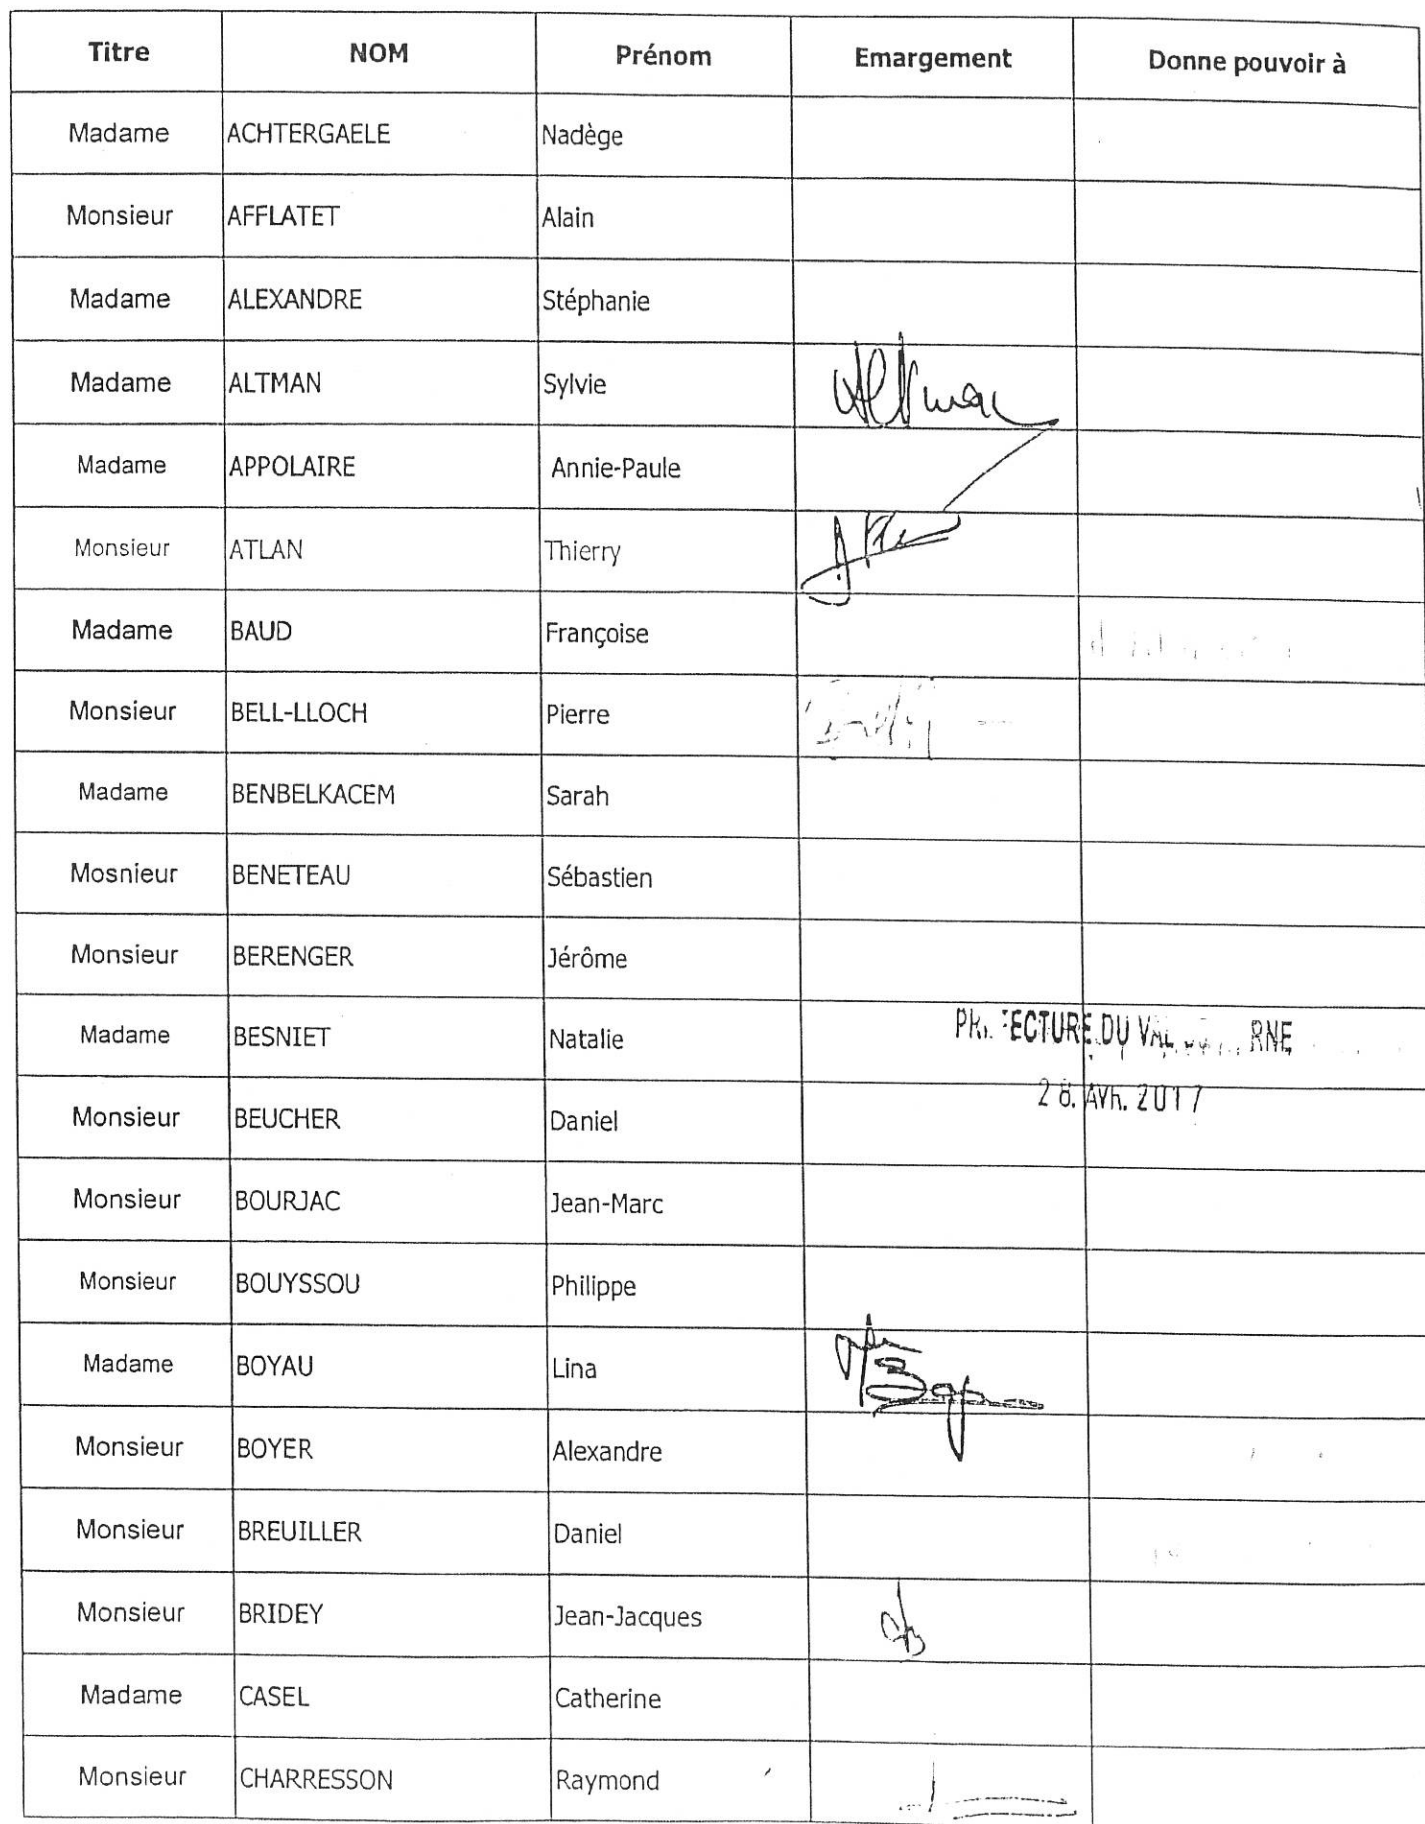 Titre NOM Prénom Emargement Donne pouvoir à
Madame ACHTERGAELE Nadège
Monsieur AFFLATET Alain
Madame ALEXANDRE Stéphanie
Madame ALTMAN Sylvie
Madame APPOLAIRE Annie-Paule
Monsieur ATLAN Thierry
Madame BAUD Françoise
Monsieur BELL-LLOCH Pierre
Madame BENBELKACEM Sarah
Mosnieur BENETEAU Sébastien
Monsieur BERENGER Jérôme
Madame BESNIET Natalie
DU
Monsieur BEUCHER Daniel
2017
Monsieur BOURJAC Jean-Marc
Monsieur BOUYSSOU Philippe
Madame BOYAU Lina
Monsieur BOYER Alexandre
Monsieur BREUILLER Daniel
Monsieur BRIDEY Jean-Jacques
Madame CASEL Catherine
Monsieur CHARRESSON Raymond